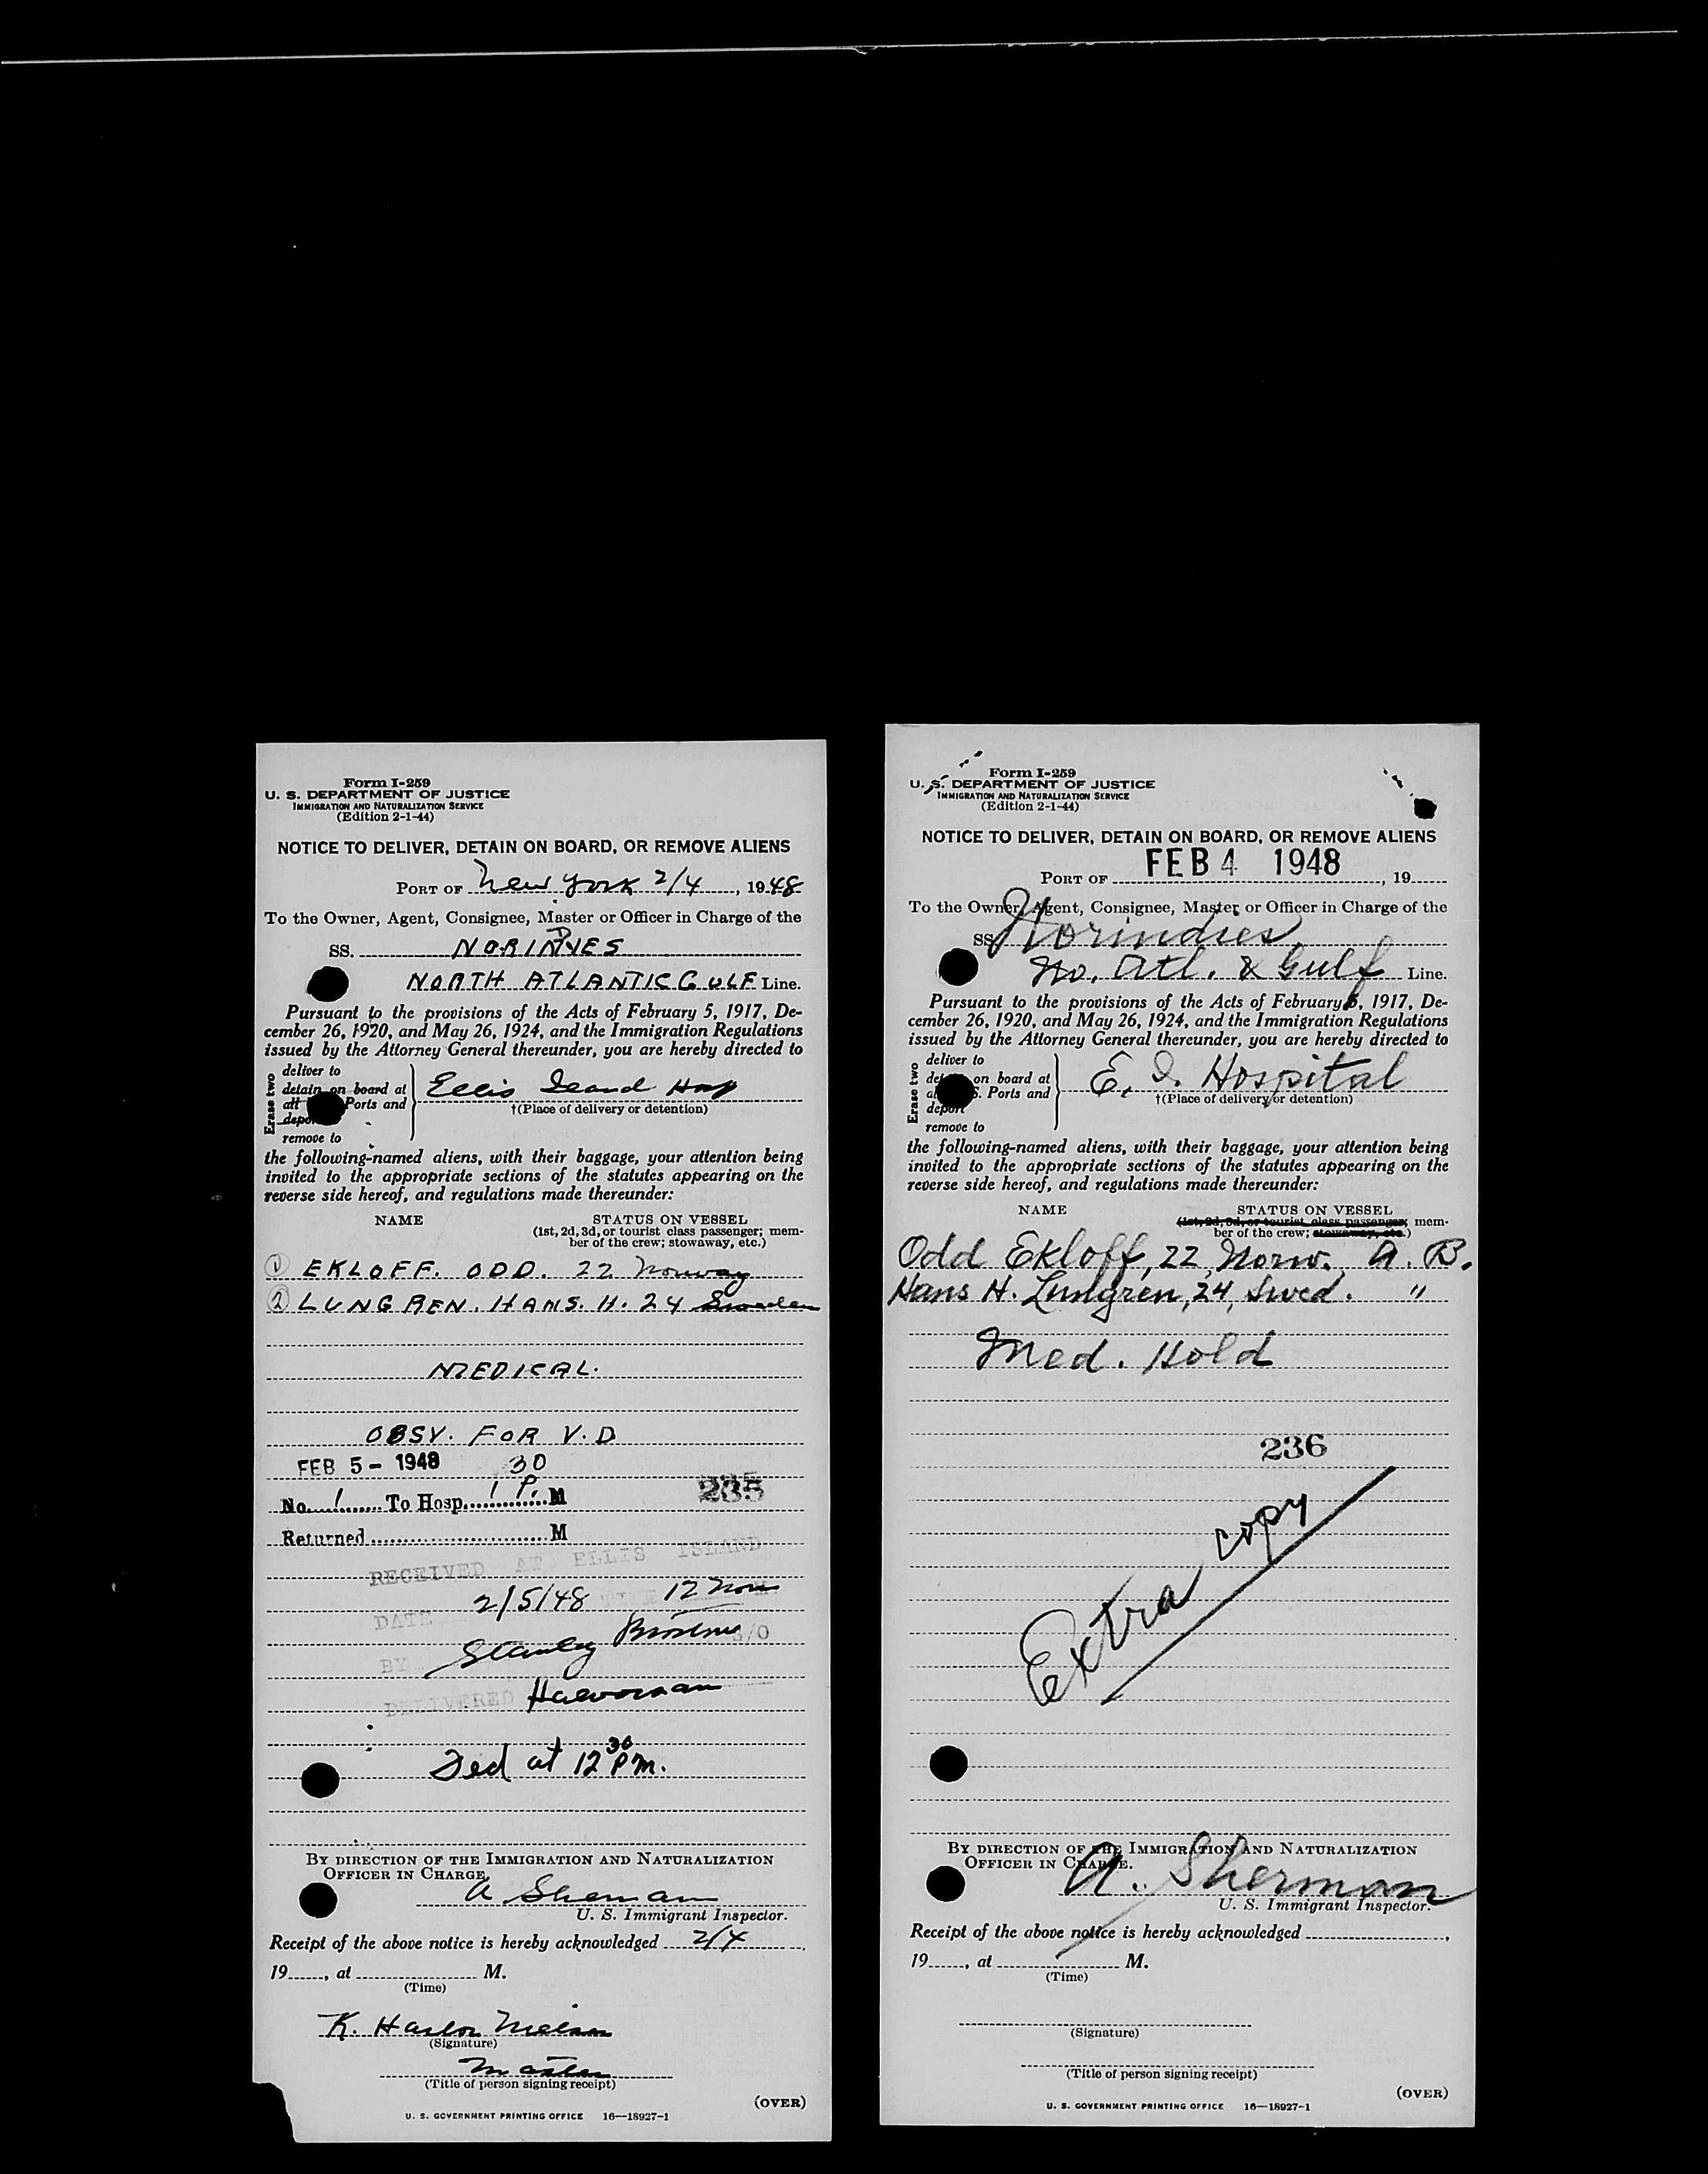 Form I-259
U. S. DEPARTMENT OF JUSTICE
IMMIGRATION AND NATURALIZATION SERVICE
(Edition 2-1-44)
NOTICE TO DELIVER, DETAIN ON BOARD, OR REMOVE ALIENS
PORT OF New York 2/4, 1948
To the Owner, Agent, Consignee, Master or Officer in Charge of the
SS. NORINDIES
NORTH ATLANTIC GULF Line.
Pursuant to the provisions of the Acts of February 5, 1917, De-
cember 26, 1920, and May 26, 1924, and the Immigration Regulations
issued by the Attorney General thereunder, you are hereby directed to
Erase two
deliver to
detain on board at
all Ports and
remove to
Ellis Island Hosp
†(Place of delivery or detention)
the following-named aliens, with their baggage, your attention being
invited to the appropriate sections of the statutes appearing on the
reverse side hereof, and regulations made thereunder:
NAME STATUS ON VESSEL
(1st, 2d, 3d, or tourist class passenger; mem-
ber of the crew; stowaway, etc.)
1 EKLOFF. ODD. 22 Norway
2 LUNGREN. HANS. H. 24 Sweden
MEDICAL.
OBSV. FOR V.D
FEB 5 - 1948 30
No. 1 To Hosp. 1 P. M 235
Returned M
RECEIVED AT ELLIS ISLAND
DATE 2/5/48 TIME 12 Noon M
BY Stanley S/O
DELIVERED Halvorsan
Fed at 12 30 P.M.
BY DIRECTION OF THE IMMIGRATION AND NATURALIZATION
OFFICER IN CHARGE.
A Sherman
U. S. Immigrant Inspector.
Receipt of the above notice is hereby acknowledged 2/4,
19, at M.
(Time)
K.
(Signature)
Master
(Title of person signing receipt)
(OVER)
U. S. GOVERNMENT PRINTING OFFICE 16—18927-1
Form I-259
U. S. DEPARTMENT OF JUSTICE
IMMIGRATION AND NATURALIZATION SERVICE
(Edition 2-1-44)
NOTICE TO DELIVER, DETAIN ON BOARD, OR REMOVE ALIENS
PORT OF FEB 4 1948, 19
To the Owner, Agent, Consignee, Master or Officer in Charge of the
SS Norindies
No. Atl. & Gulf Line.
Pursuant to the provisions of the Acts of February 5, 1917, De-
cember 26, 1920, and May 26, 1924, and the Immigration Regulations
issued by the Attorney General thereunder, you are hereby directed to
Erase two
deliver to
on board at
S. Ports and
deport
remove to
E. I. Hospital
†(Place of delivery or detention)
the following-named aliens, with their baggage, your attention being
invited to the appropriate sections of the statutes appearing on the
reverse side hereof, and regulations made thereunder:
NAME STATUS ON VESSEL
(1st, 2d, 3d, or tourist class passenger; mem-
ber of the crew; stowaway, etc.)
Odd Ekloff, 22, Norw. A. B.
Hans H. Lundgren, 24, Swed. "
Med. Hold
236
Extra copy
BY DIRECTION OF THE IMMIGRATION AND NATURALIZATION
OFFICER IN CHARGE.
A. Sherman
U. S. Immigrant Inspector.
Receipt of the above notice is hereby acknowledged,
19, at M.
(Time)
(Signature)
(Title of person signing receipt)
(OVER)
U. S. GOVERNMENT PRINTING OFFICE 16—18927-1